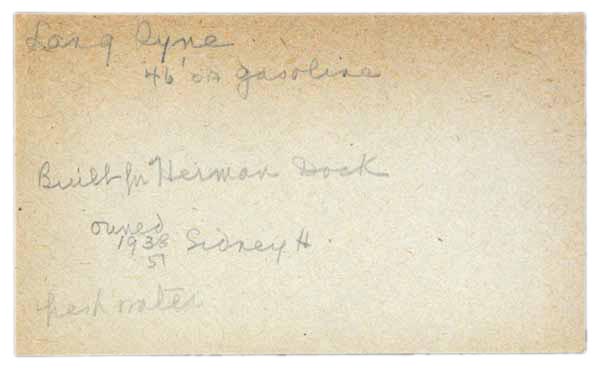 Lang Syne
46' oa gasoline
Built for Herman Dock
owned
1938 Sidney H.
51
fresh water